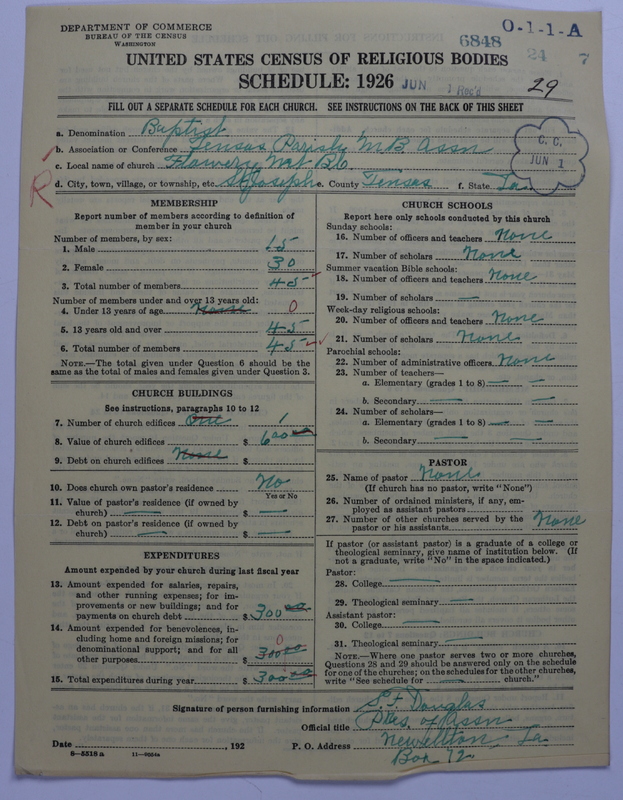 DEPARTMENT OF COMMERCE
BUREAU OF THE CENSUS
WASHINGTON
O-1-1-A
6848
24 7
UNITED STATES CENSUS OF RELIGIOUS BODIES
SCHEDULE: 1926
JUN 1 Rec'd
29
FILL OUT A SEPARATE SCHEDULE FOR EACH CHURCH. SEE INSTRUCTIONS ON THE BACK OF THIS SHEET
a. Denomination Baptist
b. Association or Conference Tensas Parish M B Assn
c. Local name of church Flowery Mt B C
d. City, town, village, or township, etc. St Joseph e. County Tensas f. State La
C. C.
JUN 1
R
MEMBERSHIP
Report number of members according to definition of
member in your church
Number of members, by sex:
1. Male 15
2. Female 30
3. Total number of members 45
Number of members under and over 13 years old:
4. Under 13 years of age None 0
5. 13 years old and over 45
6. Total number of members 45
NOTE.—The total given under Question 6 should be the
same as the total of males and females given under Question 3.
CHURCH BUILDINGS
See instructions, paragraphs 10 to 12
7. Number of church edifices One 1
8. Value of church edifices $ 600 00
9. Debt on church edifices None $
10. Does church own pastor's residence No
Yes or No
11. Value of pastor's residence (if owned by
church) — $ —
12. Debt on pastor's residence (if owned by
church) — $ —
EXPENDITURES
Amount expended by your church during last fiscal year
13. Amount expended for salaries, repairs,
and other running expenses; for im-
provements or new buildings; and for
payments on church debt $ 300 00
14. Amount expended for benevolences, in-
cluding home and foreign missions; for
denominational support; and for all
other purposes $ 300 00 0
15. Total expenditures during year $ 300 00
CHURCH SCHOOLS
Report here only schools conducted by this church
Sunday schools:
16. Number of officers and teachers None
17. Number of scholars None
Summer vacation Bible schools:
18. Number of officers and teachers None
19. Number of scholars —
Week-day religious schools:
20. Number of officers and teachers None
21. Number of scholars None
Parochial schools:
22. Number of administrative officers None
23. Number of teachers—
a. Elementary (grades 1 to 8) — —
b. Secondary — —
24. Number of scholars—
a. Elementary (grades 1 to 8) — —
b. Secondary — —
PASTOR
25. Name of pastor None
(If church has no pastor, write "None")
26. Number of ordained ministers, if any, em-
ployed as assistant pastors
27. Number of other churches served by the
pastor or his assistants None
If pastor (or assistant pastor) is a graduate of a college or
theological seminary, give name of institution below. (If
not a graduate, write "No" in the space indicated.)
Pastor:
28. College —
29. Theological seminary —
Assistant pastor:
30. College —
31. Theological seminary —
NOTE.—Where one pastor serves two or more churches,
Questions 28 and 29 should be answered only on the schedule
for one of the churches; on the schedules for the other churches,
write "See schedule for — church."
Signature of person furnishing information S. F. Douglas
Official title Pres. of Assn
Date , 192 P. O. Address Newellton, La
Box 72
8—5518 a